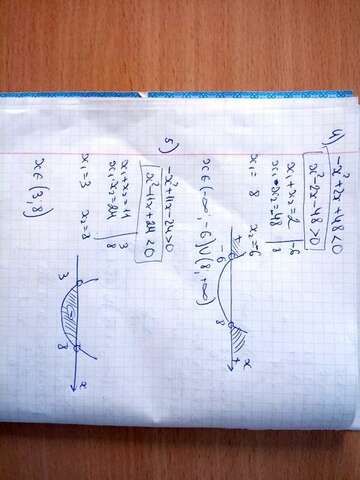 4) -x²+2x+48<0
x²-2x-48>0
x₁+x₂=2 -6
x₁•x₂=-48 8
x₁= 8 x₂=-6
+ - +
-6 8 x
x∈(-∞;-6)∪(8;+∞)
5) -x²+11x-24>0
x²-11x+24<0
x₁+x₂=11 3
x₁•x₂=24 8
x₁=3 x₂=8
3 8 x
x∈(3;8)